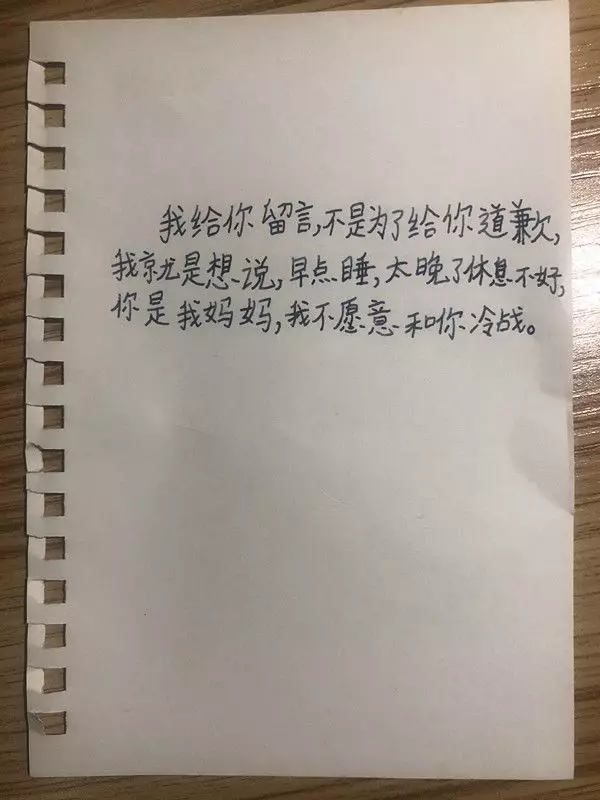 我给你留言,不是为了给你道歉,
我就是想说,早点睡,太晚了休息不好,
你是我妈妈,我不愿意和你冷战。